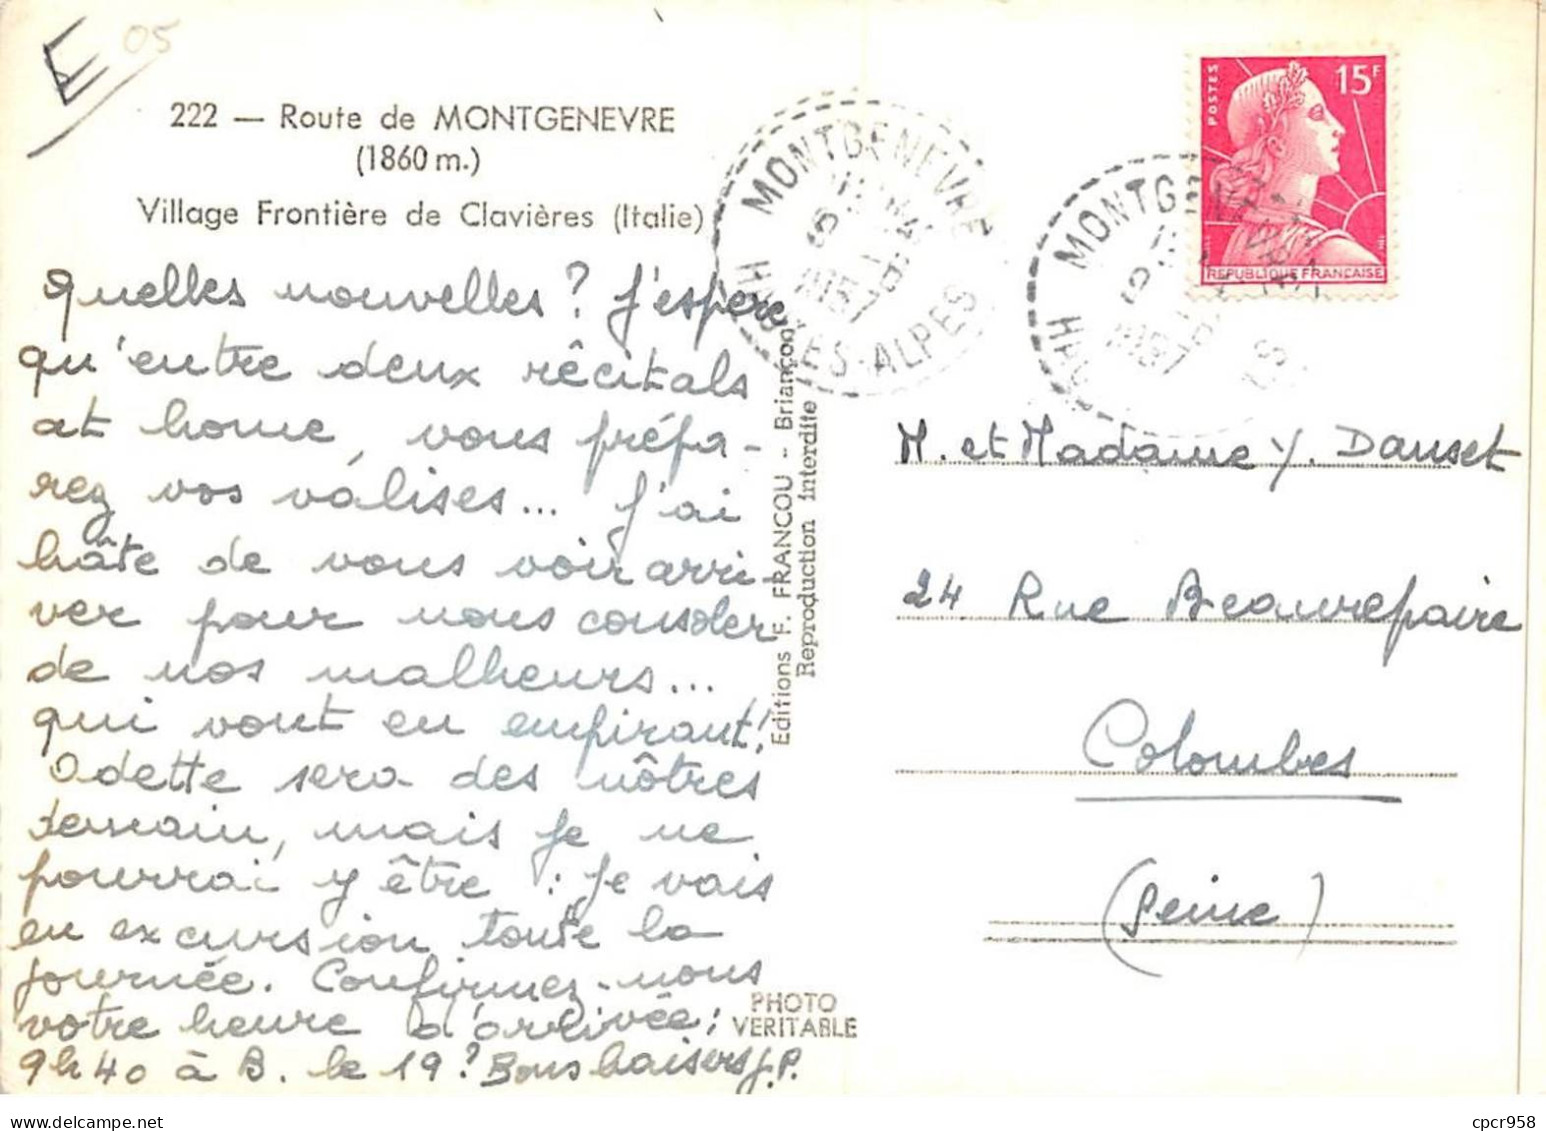 E 05
222 — Route de MONTGENEVRE
(1860 m.)
Village Frontière de Clavières (Italie)
Quelles nouvelles ? J'espère
qu'entre deux récitals
at home, vous prépa-
rez vos valises... J'ai
hâte de vous voir arri-
ver pour nous consoler
de nos malheurs...
qui vont en empirant !
Odette sera des nôtres
demain, mais je ne
pourrai y être : je vais
en excursion toute la
journée. Confirmez-nous
votre heure d'arrivée :
9h40 à B. le 19 ? Bons baisers J.P.
Editions F. FRANCOU - Briançon
Reproduction interdite
PHOTO
VERITABLE
MONTGENEVRE
HAUTES-ALPES
POSTES
15F
REPUBLIQUE FRANCAISE
MONTGENEVRE
M. et Madame Y. Danset
24 Rue Beaurepaire
Colombes
(Seine)
cpcr958